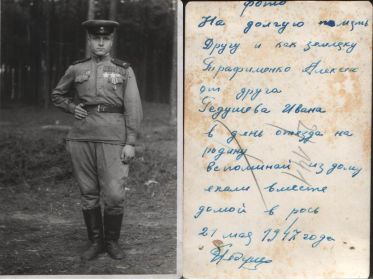 фото
На долгую память
Другу и как земляку
Трафименко Алексею
от друга
Гедушева Ивана
в день отезда на
родину
вспоминай из дому
ехали вместе
домой в
21 мая 1947 года